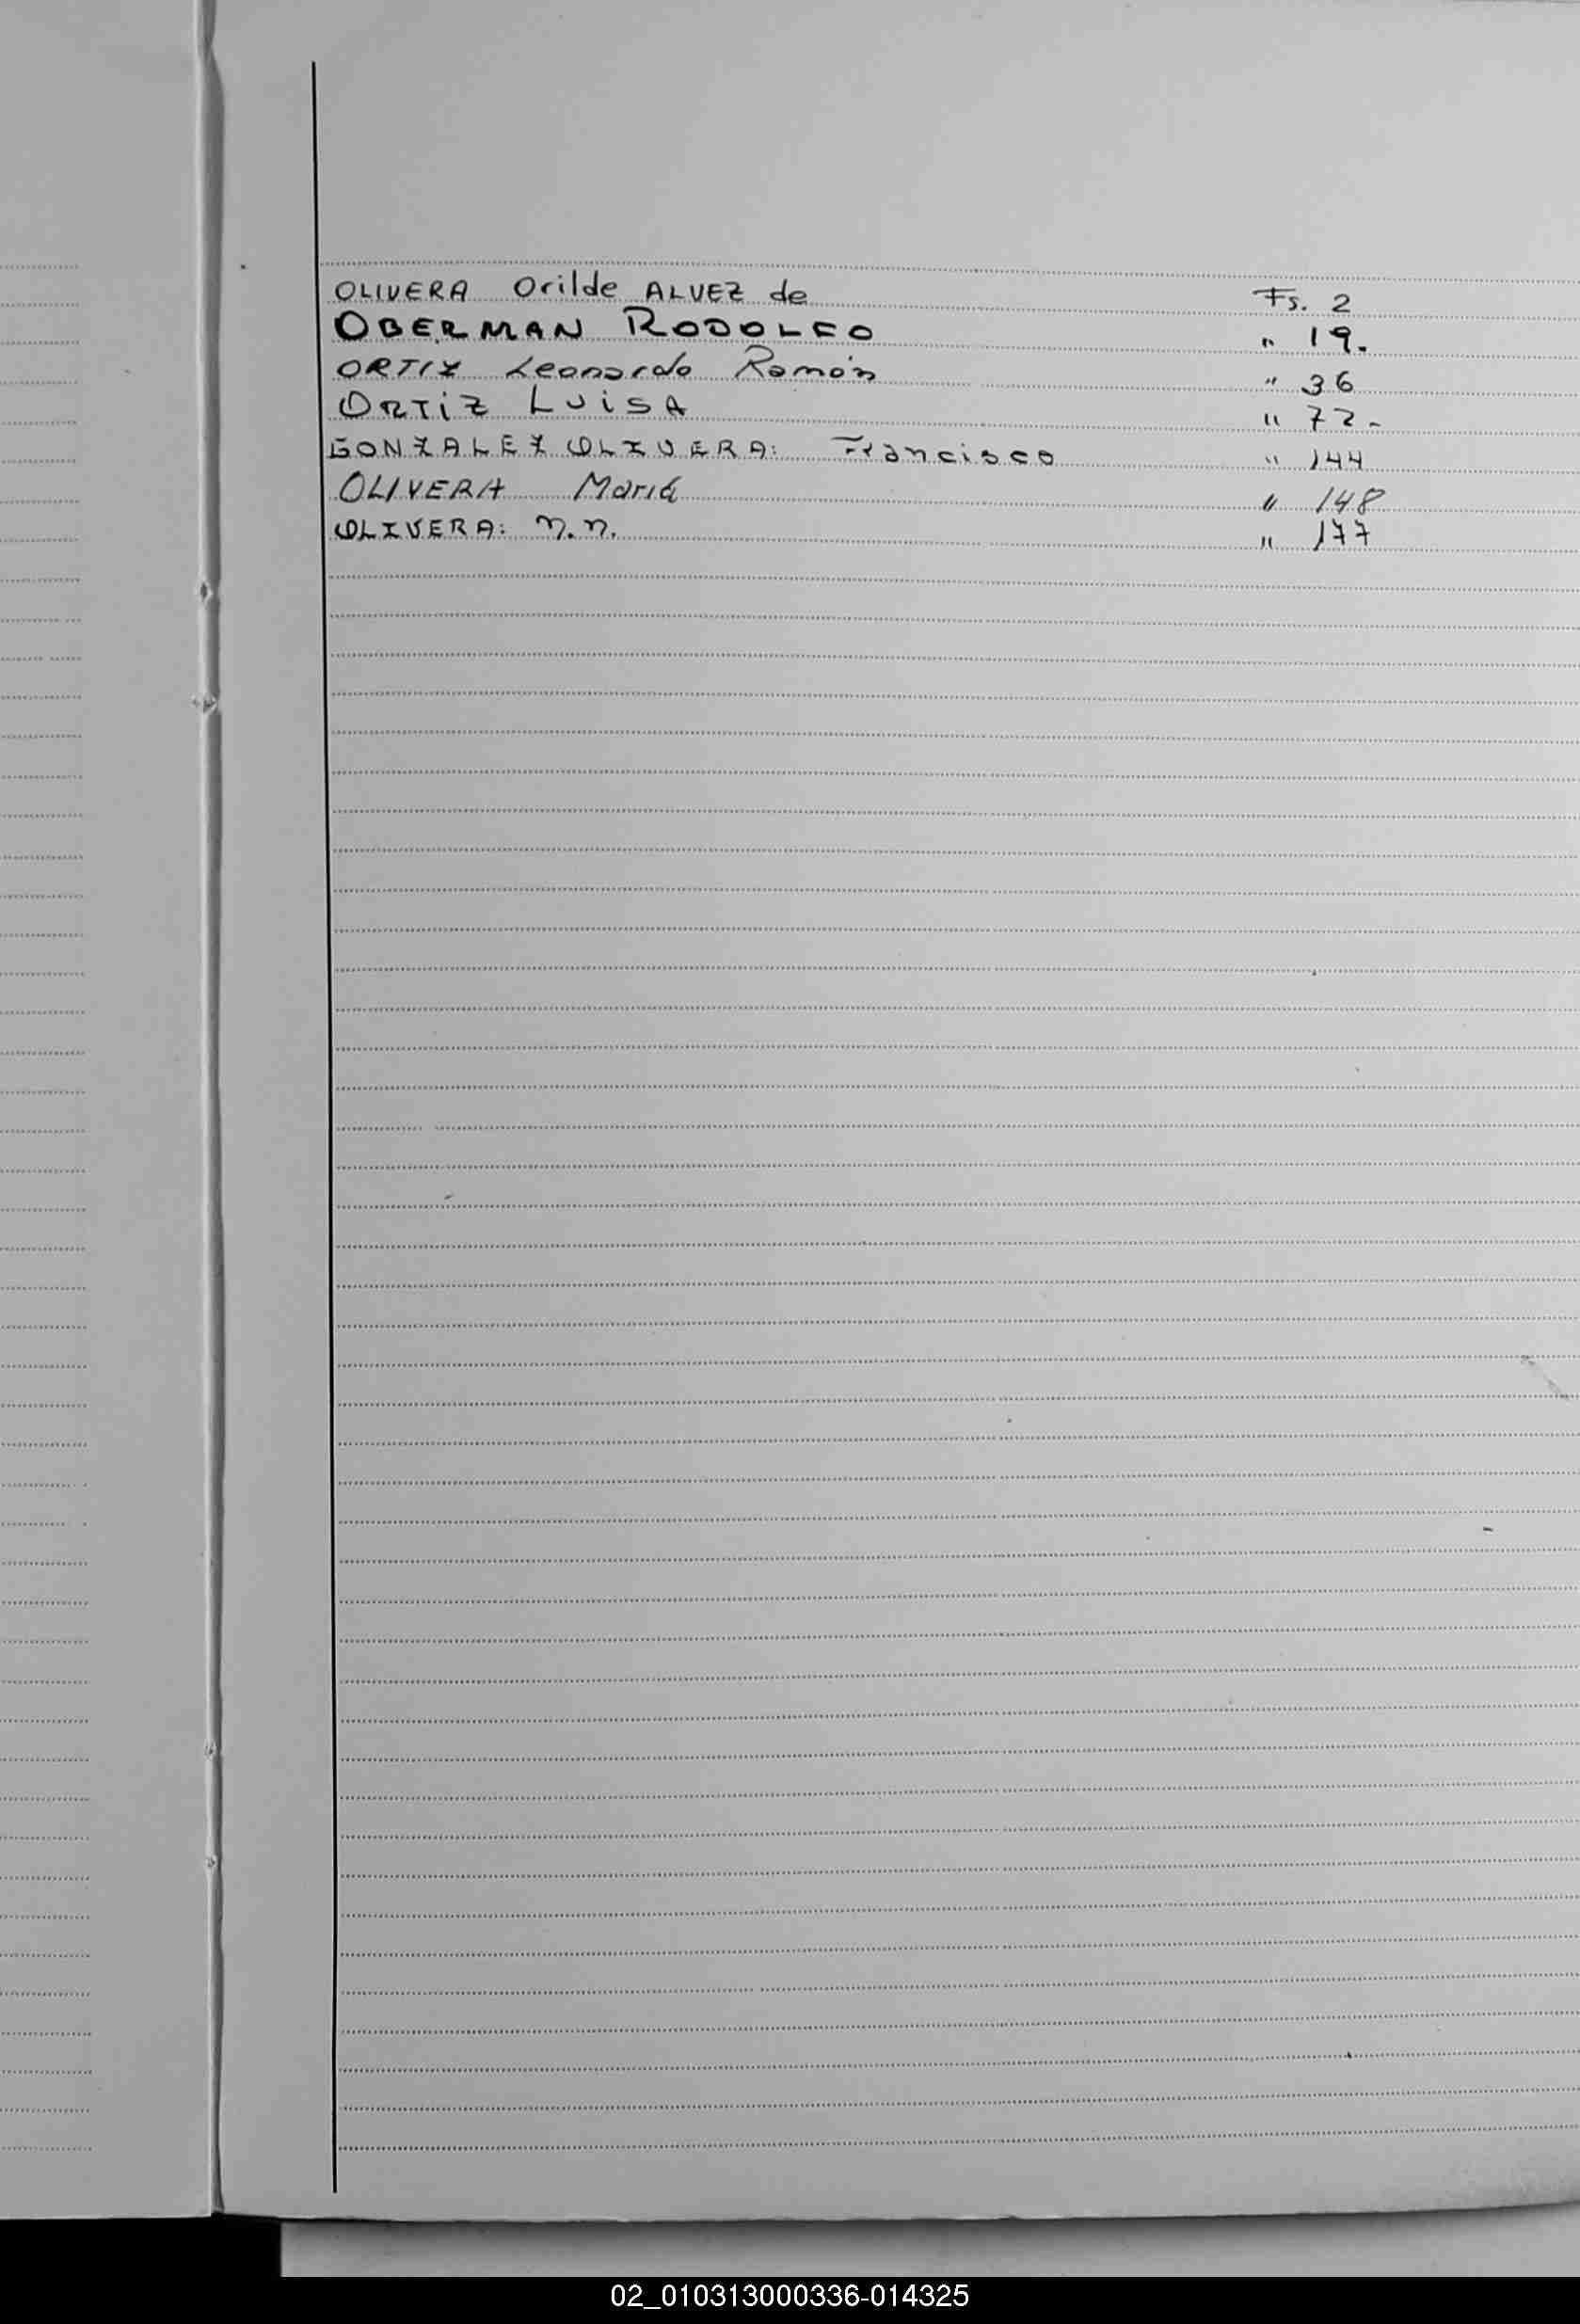 OLIVERA Orilde ALVEZ de Fs. 2
OBERMAN RODOLFO " 19.
ORTIZ Leonardo Ramón " 36
ORTIZ LUISA " 72-
GONZALEZ OLIVERA: Francisco " 144
OLIVERA María " 148
OLIVERA: N.N. " 177
02_010313000336-014325